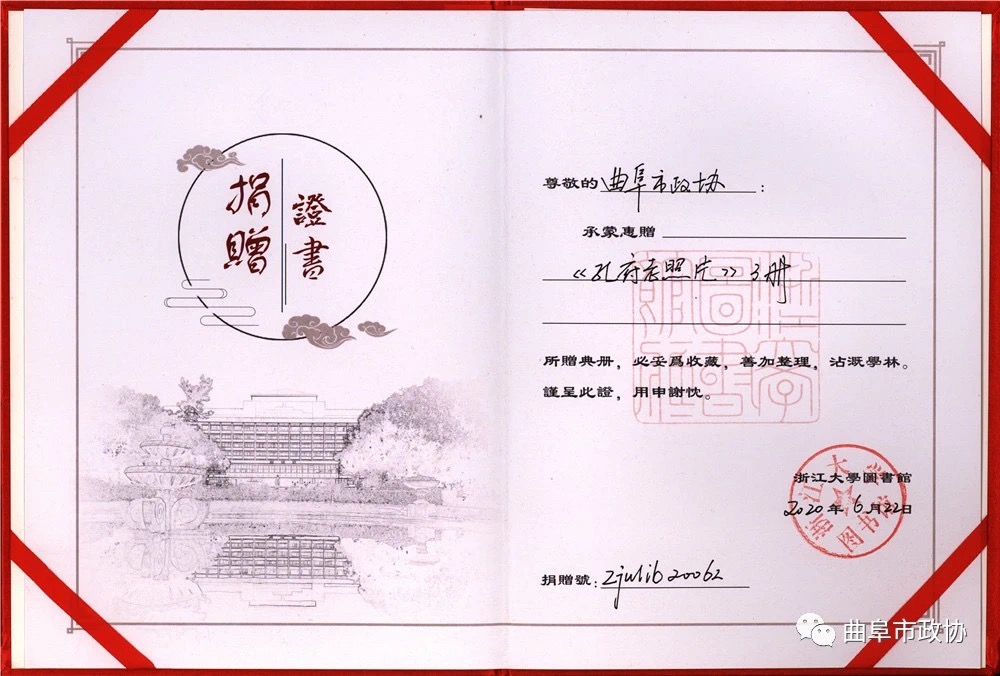 捐贈
證書
尊敬的曲阜市政协：
承蒙惠贈
《孔府老照片》3册
所贈典册，必妥爲收藏，善加整理，沾溉學林。
謹呈此證，用申謝忱。
浙江大學圖書館
2020年6月22日
浙江大学图书馆
捐贈號：zjulib20062
曲阜市政协